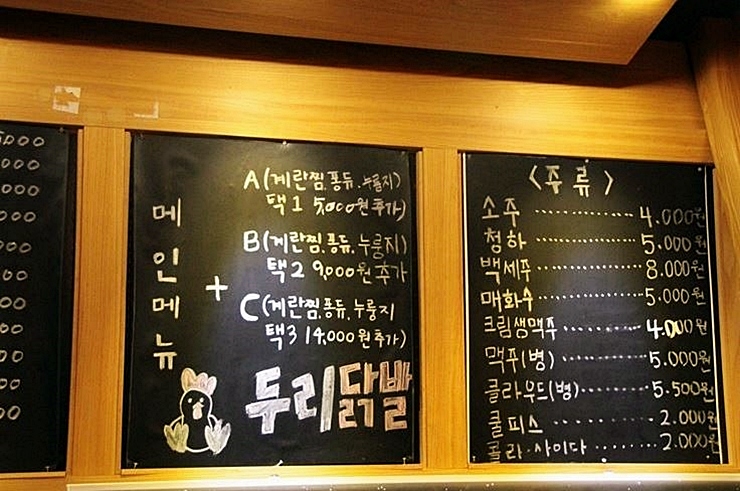 000
000
000
000
00
00
00
00
00
00
00
메인메뉴
+
A(계란찜.퐁듀.누룽지)
택1 5,000원추가)
B(계란찜.퐁듀.누룽지)
택2 9,000원추가
C(계란찜.퐁듀.누룽지
택3 14,000원추가)
두리닭발
<주류>
소주 ·············· 4.000원
청하 ·············· 5.000원
백세주 ·············· 8.000원
매화수 ·············· 5.000원
크림생맥주 ·········· 4.000원
맥주(병) ············ 5.000원
클라우드(병) ········ 5.500원
쿨피스 ·············· 2.000원
콜라·사이다 ········ 2.000원